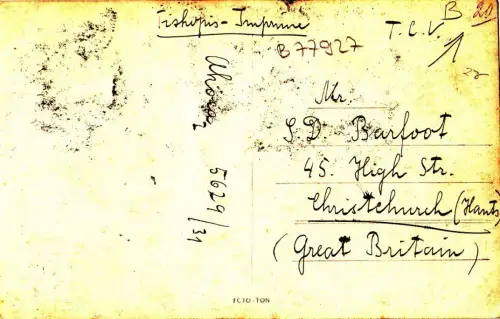 Tiskopis - Imprimé
B 77927
T. C. V. B
20
Mr.
S. D. Barfoot
45. High Str.
Christchurch (Hants)
(Great Britain)
5629/31
FOTO-TON